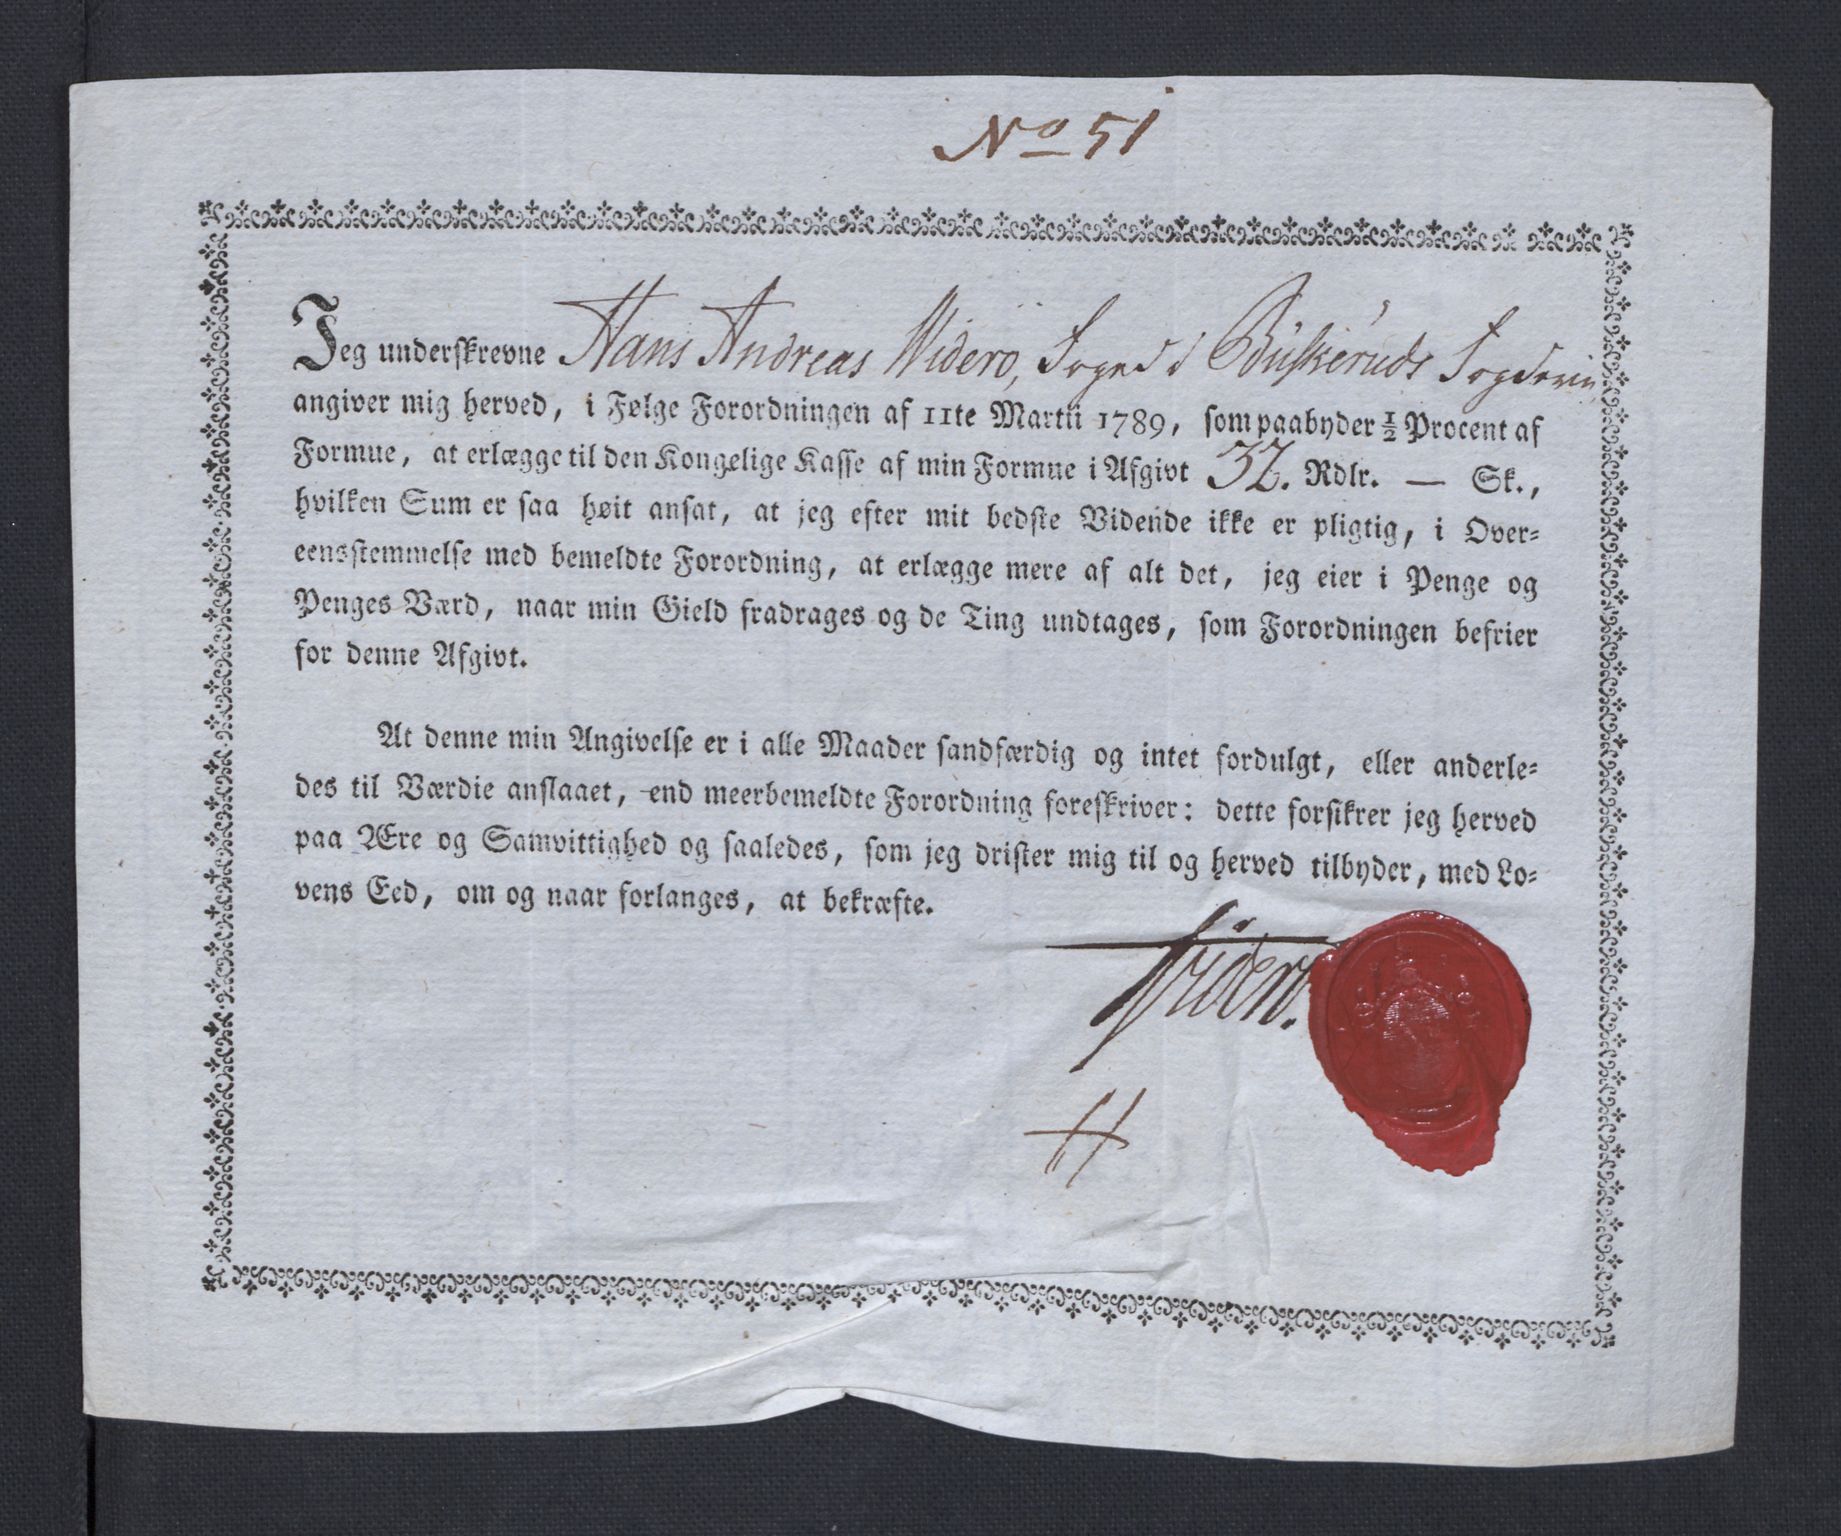 No 51
Jeg underskrevne Hans Andreas Widerö, Foged i Buskeruds Fogderie
angiver mig herved, i Følge Forordningen af 11te Martii 1789, som paabyder ½ Procent af
Formue, at erlægge til den Kongelige Kasse af min Formue i Afgivt 32. Rdlr. — Sk.,
hvilken Sum er saa høit ansat, at jeg efter mit bedste Vidende ikke er pligtig, i Over=
eensstemmelse med bemeldte Forordning, at erlægge mere af alt det, jeg eier i Penge og
Penges Værd, naar min Gield fradrages og de Ting undtages, som Forordningen befrier
for denne Afgivt.
At denne min Angivelse er i alle Maader sandfærdig og intet fordulgt, eller anderle=
des til Værdie anslaaet, end meerbemeldte Forordning foreskriver: dette forsikrer jeg herved
paa Ære og Samvittighed og saaledes, som jeg drister mig til og herved tilbyder, med Lo=
vens Eed, om og naar forlanges, at bekræfte.
Widerö.